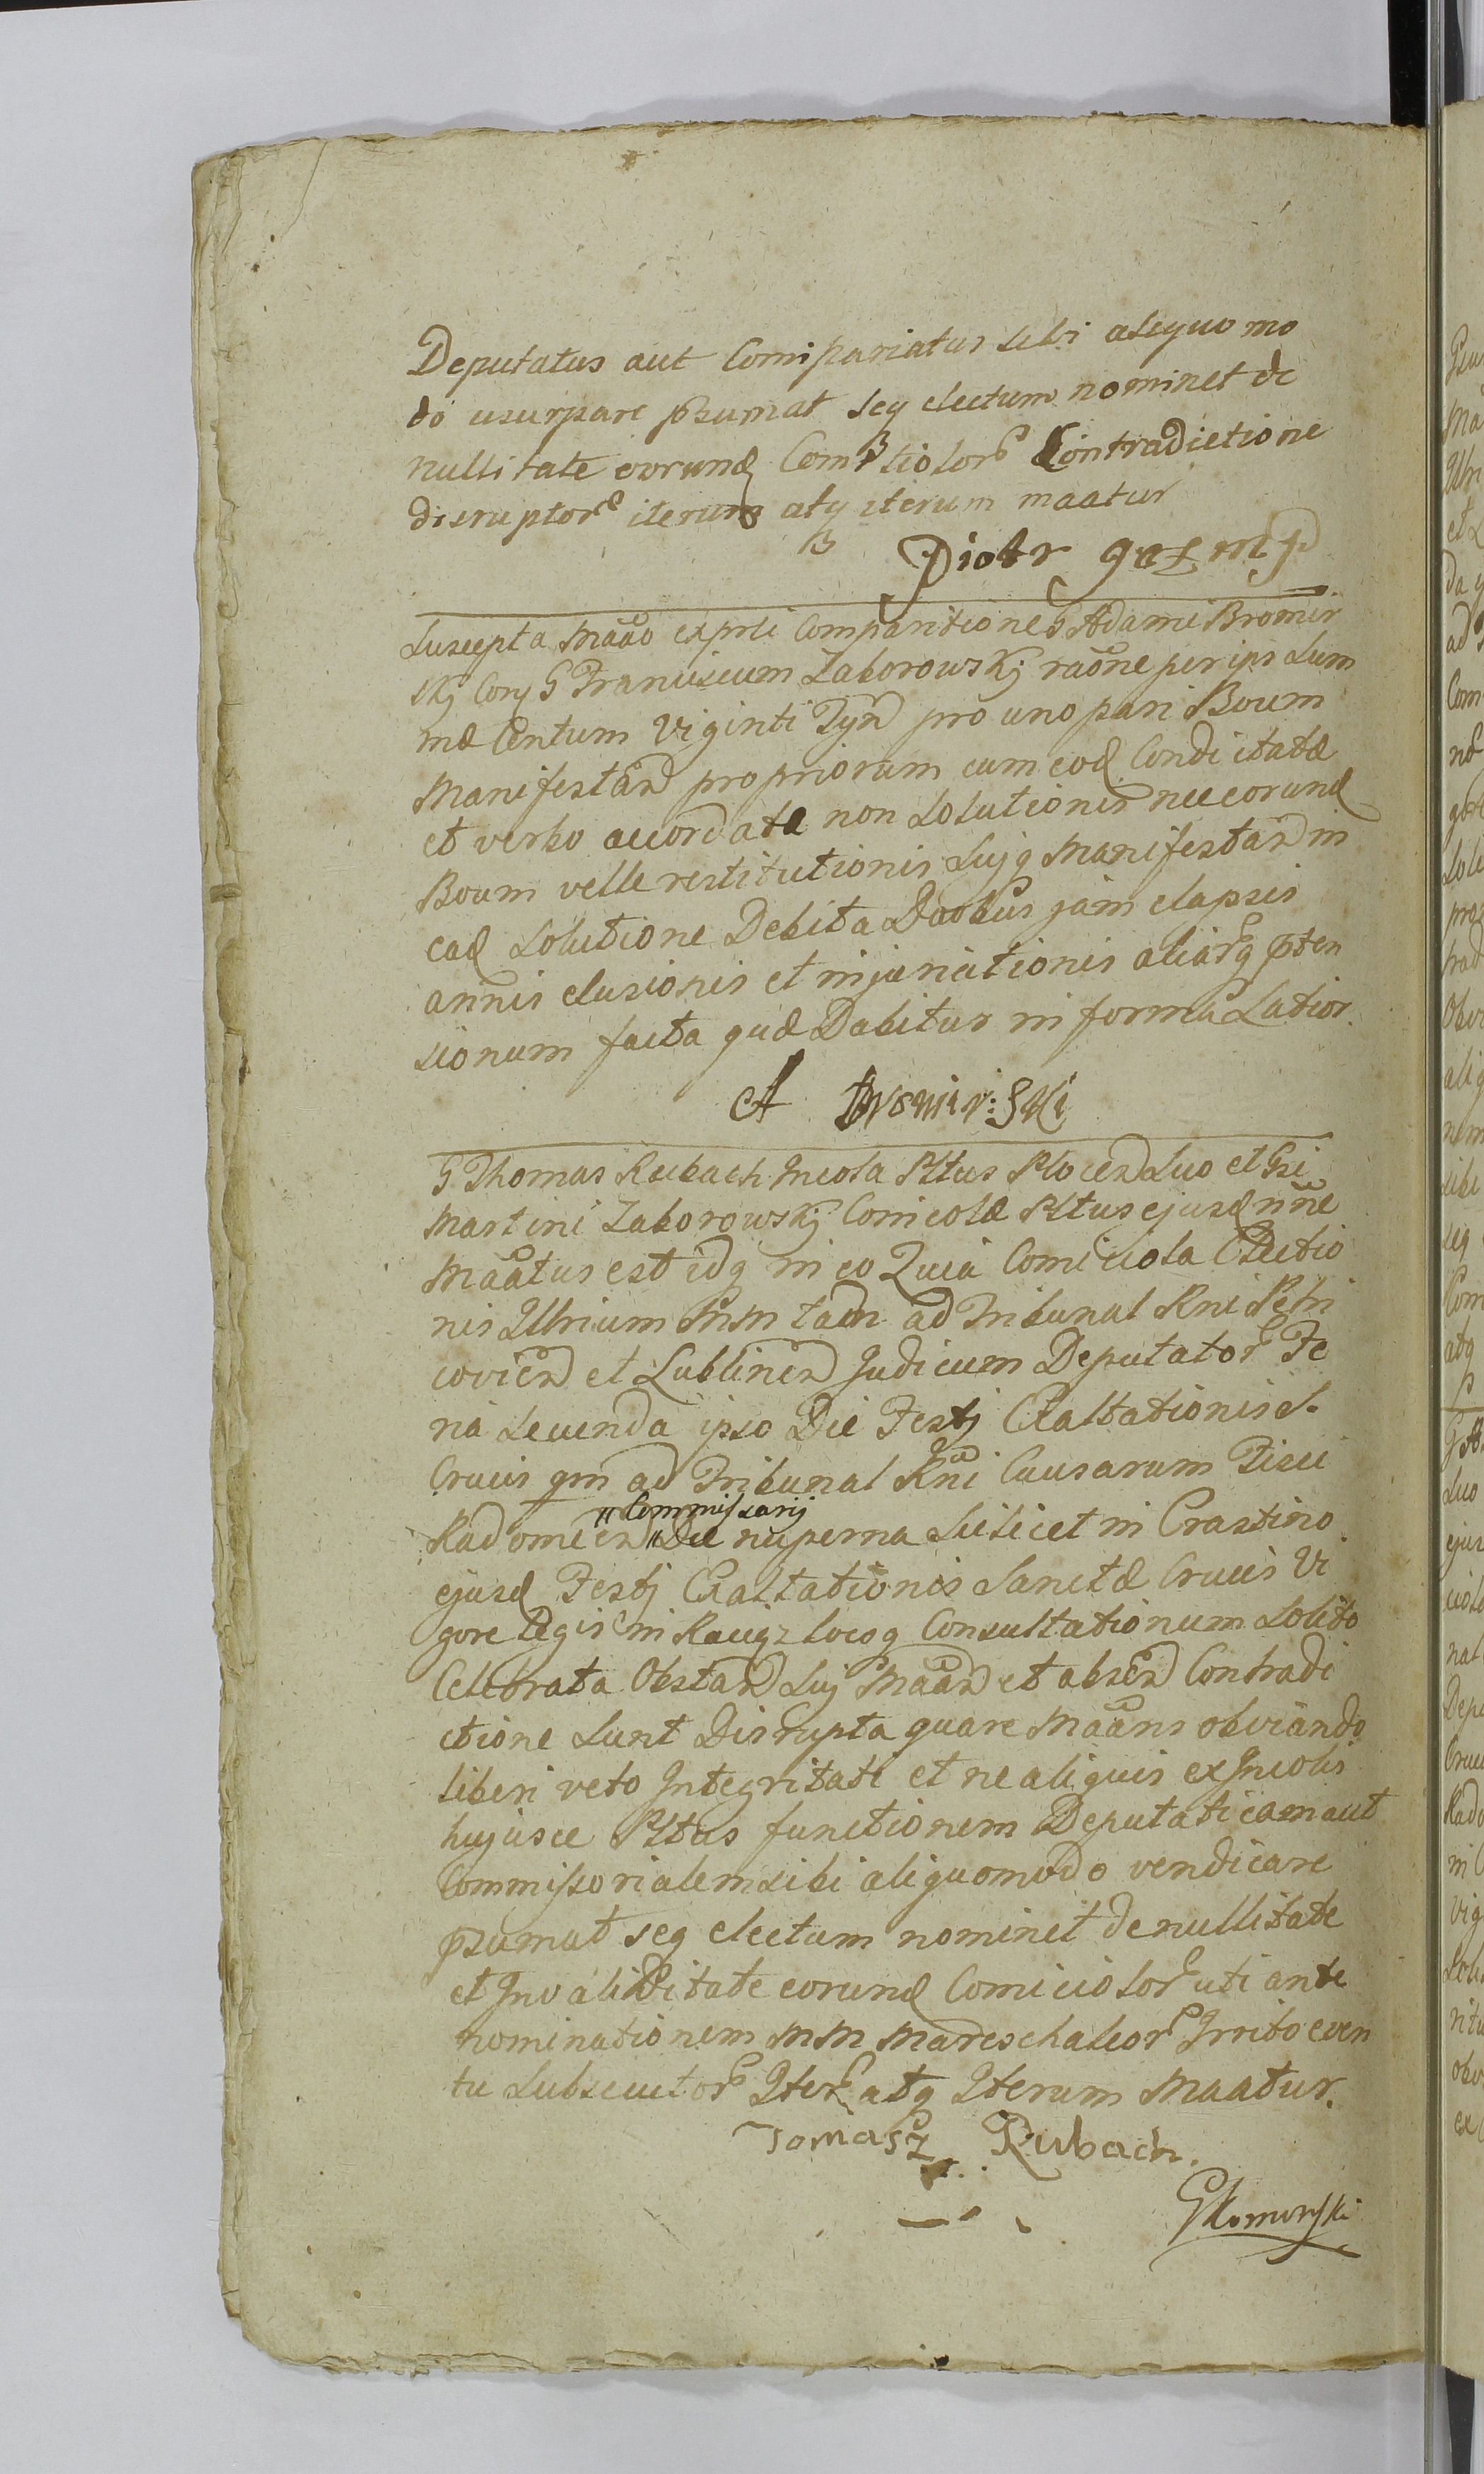 Deputatus aut Comipariatus sibi aliquo mo
do usurpare psumat seq electum nominet de
nullitate eorund Comitiolor Contradictione
disruptor iterum atq iterum maatur
Piotr mp
Suscepta Maao ex prti Comparitione G Adami Bromir
skj Corq G Franciscum Zaborowskj raone per ips Sum
mæ Centum Viginti Tyn pro uno pari Boum
Manifestan propriorum cum eod Condictatæ
et verbo accordatæ non Solutionis nec eorund
Boum velle restitutionis Sujq Manifestan in
ead Solutione Debita Duobus jam elapsis
annis elusionis et injuriationis aliarq pten
sionum facta quæ Dabitur in forma Latior.
A Bromir:Ski
G Thomas Rubach Incola Pltus Plocen Suo et Gsi
Martini Zaborowskj Comicolæ Pltus ejusd nne
Maatus est idq in eo Quia Comiciola Electio
nis Illrium MM tam ad Tribunal Rni Petri
covien et Lublinen Judicum Deputator Fe
ria Secunda ipso Die Festj Exaltationis S.
Crucis qm ad Tribunal Rni Causarum Fisci
Radomien "Commissarij" Die nuperna Scilicet in Crastino
ejusd Festj Exaltationis Sanctæ Crucis Vi
gore Legis in Raciąz locoq Consultationum Solito
Celebrata Obstan Suj Maan et absen Contradi
ctione Sunt Disrupta quare Maans obviando
liberi veto Integritati et ne aliquis ex Incolis
hujusce Pltus functionem Deputaticam aut
Commissorialem sibi aliquomodo vendicare
psumat seq electum nominet de nullitate
et Invaliditate eorund Comiciolor uti ante
nominationem MM Mareschalcor Irrito even
tu Subsecutor Iter atq Iterum Maatur.
Tomasz Rubach.
GKomorski